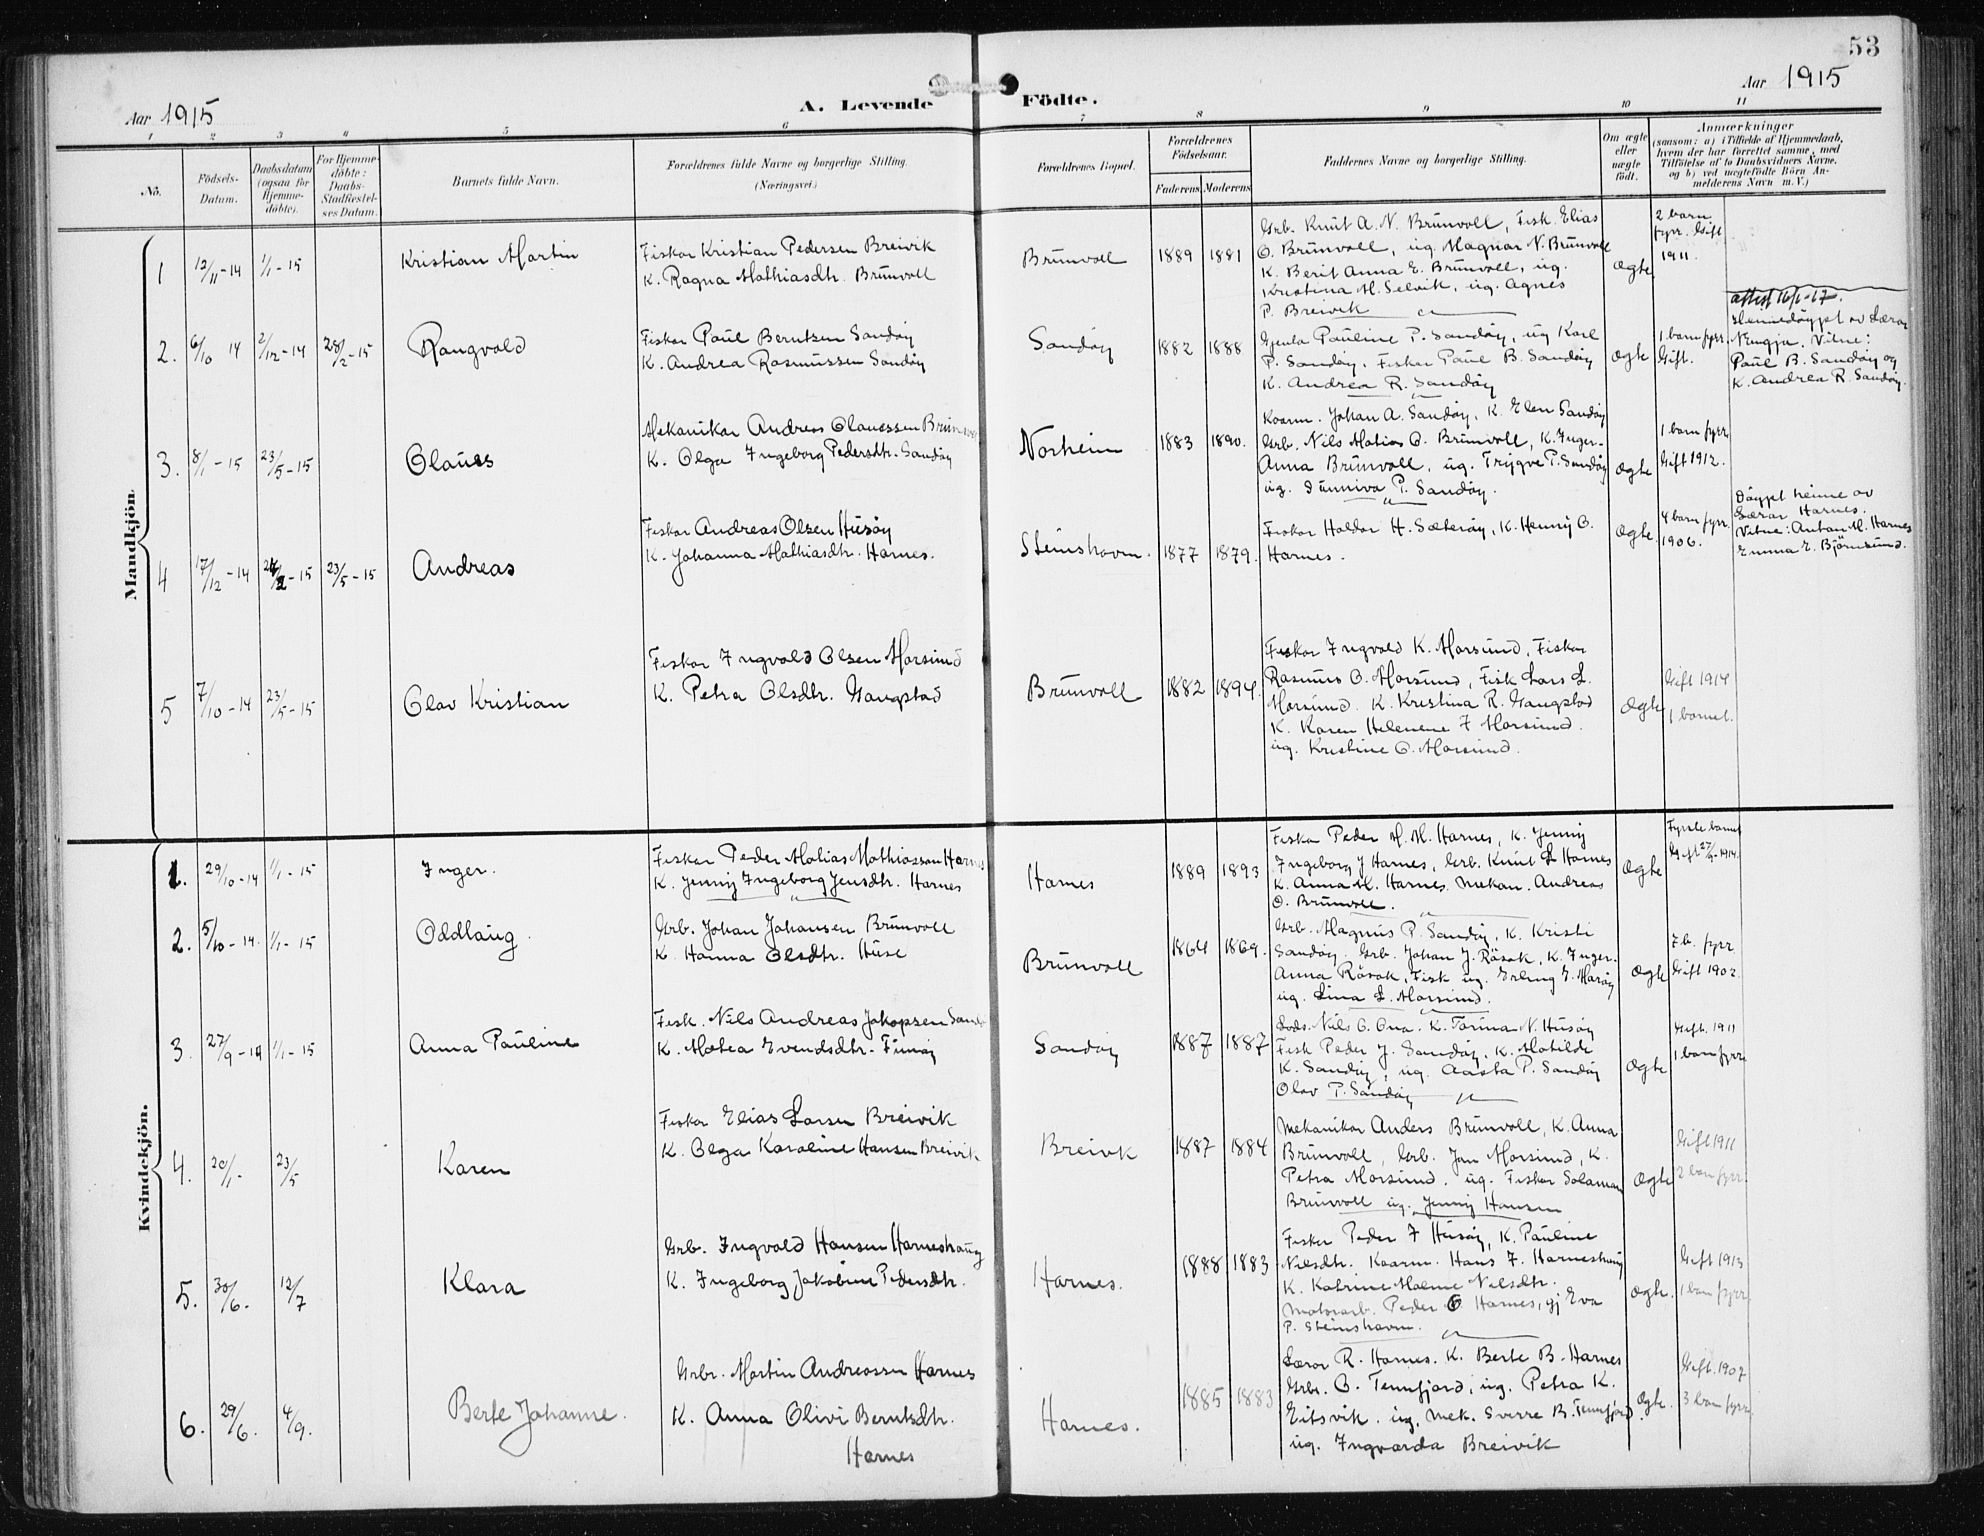 53
Aar 1915
A. Levende Födte.
Aar 1915
1 2 3 4 5 6 7 8 9 10 11
No.
Födsels-Datum.
Daabsdatum (ogsaa for Hjemmedöbte).
For Hjemmedöbte: Daabs-Stadfæstelses Datum.
Barnets fulde Navn.
Forældrenes fulde Navne og borgerlige Stilling.
(Næringsvei.)
Forældrenes Bopæl.
Forældrenes Födselsaar.
Faderens Moderens
Faddernes Navne og borgerlige Stilling.
Om ægte eller uægte födt.
Anmærkninger
(saasom: a) i Tilfælde af Hjemmedaab,
hvem der har forrettet samme, med
Tilföielse af to Daabsvidners Navne,
og b) ved uægtefödte Börn An-
melderens Navn m. V.)
Mandkjön.
1 12/11-14 1/1-15 Kristian Martin
Fiskar Kristian Pedersen Breivik
K. Ragna Mathiasdtr. Brunvoll
Brunvoll 1889 1881
Grb. Knut A. N. Brunvoll, Fisk. Elias
O. Brunvoll, ug. Magnar N. Brunvoll
K. Berit Anna E. Brunvoll, ug.
Kristina M. Selvik, ug. Agnes
P. Breivik
Ægte
2 barn
fyrr. Gift
1911.
2. 6/10 14 2/12-14 28/2-15 Rangvald
Fiskar Paul Berntsen Sandøy
K. Andrea Rasmussen Sandøy
Sandøy 1882 1888
Gjenta Pauline P. Sandøy, ug Karl
P. Sandøy, Fiskar Paul B. Sandøy
K. Andrea R. Sandøy
Ægte
1 barn fyrr.
Gift.
attest 16/1-17.
Heimedøypt av Lærar
Nengja. Vitne:
Paul B. Sandøy og
K. Andrea R. Sandøy.
3. 8/1-15 23/5-15 Olauss
Mekanikar Andreas Olaussen Brunvoll
K. Olga Ingeborg Pedersdtr. Sandøy
Norheim 1883 1890.
Kaarm. Johan A. Sandøy, K. Elen Sandøy
Grb. Nils Matias O. Brunvoll, K. Inger-
Anna Brunvoll, ug. Trygve P. Sandøy
ug. Sunniva P. Sandøy.
Ægte
1 barn fyrr.
Gift 1912.
4 17/12-14 -15 23/5-15 Andreas
Fiskar Andreas Olsen Husøy
K. Johanna Mathiasdtr. Harnes.
Steinshavn. 1877 1879.
Fiskar Haldor H. Sæterøy, K. Henny O.
Harnes.
Ægte.
4 barn fyrr.
1906.
Døypt heime av
Lærar Harnes.
Vitne: Antan M. Harnes
Emma E. Bjørnsund.
5 7/10-14 23/5-15 Olav Kristian
Fiskar Ingvald Olsen Morsund
K. Petra Olsdtr. Gangstad
Brunvoll 1882 1894.
Fiskar Ingvald K. Morsund, Fiskar
Rasmus O. Morsund, Fisk Lars L.
Morsund. K. Kristina R. Gangstad
K. Karen Helenene I Morsund.
ug. Kristine O. Morsund.
Ægte
Gift 1914
1 barnet.
Kvindekjön.
1. 29/10-14 1/1-15 Inger.
Fiskar Peder Matias Mathiassen Harnes
K. Jenny Ingeborg Jensdtr. Harnes
Harnes 1889 1893
Fiskar Peder M. M. Harnes, K. Jenny
Ingeborg J Harnes, Grb. Knut L Harnes
K. Anna M. Harnes. Mekan. Andreas
O. Brunvoll.
Ægte
Fyrste barnet
Gift 27/9-1914.
2. 5/10-14. 1/1-15 Oddlaug.
Grb. Johan Johansen Brunvoll
K. Hanna Olsdtr. Huse
Brunvoll 1864 1869.
Grb. Magnus P. Sandøy, K. Kristi
Sandøy. Grb. Johan J. Råsok, K. Inger-
Anna Råsok, Fisk ug. Erling E. Harøy
ug. Lina L. Morsund.
Ægte
7 b. fyrr
Gift 1902.
3. 27/9-14 1/1-15 Anna Pauline
Fisk. Nils Andreas Jakopsen Sandø
K. Mathea Evendsdtr. Finnøy
Sandøy 1887 1887
Lods. Nils O. Ona. K. Torina N. Husøy
Fisk Peder J. Sandøy, K. Matilde
K. Sandøy, ug. Aasta P. Sandøy
Olav P. Sandøy
Ægte
Gift. 1911
1 barn fyrr.
4. 20/1- 23/5 Karen
Fiskar Elias Larsen Breivik
K. Olga Karoline Hansen Breivik
Breivk 1887 1884
Mekanikar Anders Brunvoll, K. Anna
Brunvoll, Grb. Jan Morsund, K.
Petra Morsund. ug. Fiskar Salaman
Brunvoll ug. Jenny Hansen
Ægte
Gift 1911
2 barn fyrr.
5. 30/6. 12/7 Klara
Grb. Ingvald Hansen Harneshaug
K. Ingeborg Jakobine Pedersdtr.
Harnes. 1888 1883
Fisker Peder I Husøy, K. Pauline
Nilsdtr. Kaarm. Hans I. Harneshaug
K. Katrine Malene Nilsdtr.
Motorarb. Peder O Harnes, gj Eva
P. Steinshavn.
Ægte.
Gift 1913
1 barn fyrr.
6. 29/6. 4/9. Berte Johanne.
Grbr. Martin Andreassen Harnes
K. Anna Olivi Berntsdtr.
Harnes
Harnes. 1885 1883
Lærar R. Harnes. K. Berte B. Harnes
Grbr. O. Tennfjord, ug. Petra K.
Eitsvik. ug. mek. Sverre B. Tennfjord
ug. Ingvarda Breivik
Ægte.
Gift. 1907
3 barn fyrr.